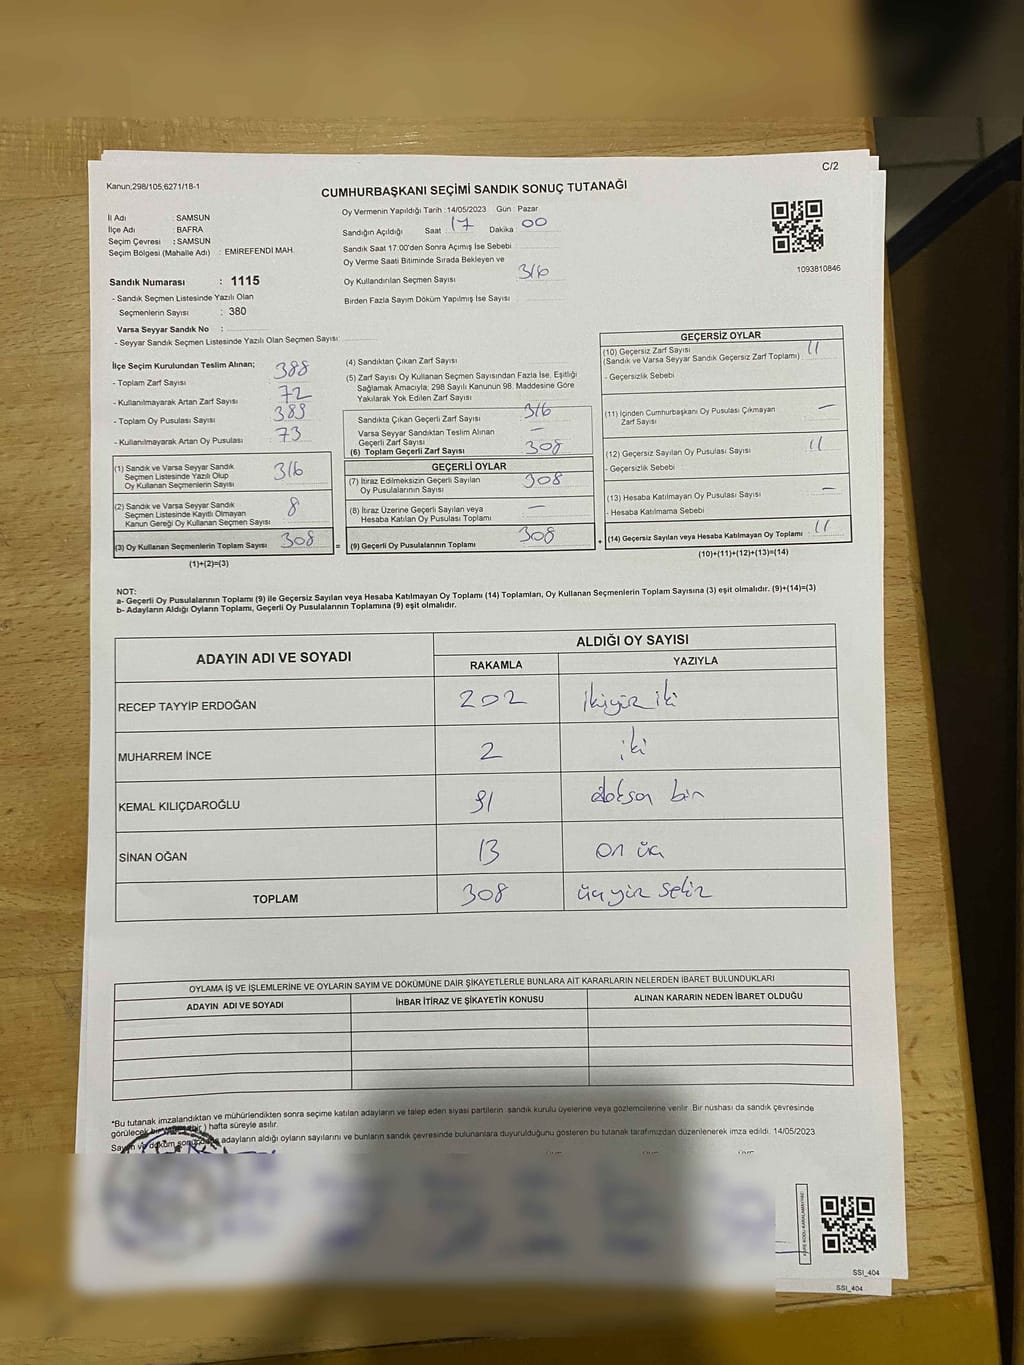 C/2
Kanun,298/105,6271/18-1
CUMHURBAŞKANI SEÇİMİ SANDIK SONUÇ TUTANAĞI
İl Adı : SAMSUN
İlçe Adı : BAFRA
Seçim Çevresi : SAMSUN
Seçim Bölgesi (Mahalle Adı) : EMIREFENDİ MAH.
Oy Vermenin Yapıldığı Tarih : 14/05/2023 Gün : Pazar
Sandığın Açıldığı Saat : 17 Dakika : 00
Sandık Saat 17:00'den Sonra Açımış İse Sebebi
Oy Verme Saati Bitiminde Sırada Bekleyen ve
Oy Kullandırılan Seçmen Sayısı 316
Birden Fazla Sayım Döküm Yapılmış İse Sayısı
1093810846
Sandık Numarası : 1115
- Sandık Seçmen Listesinde Yazılı Olan
Seçmenlerin Sayısı : 380
Varsa Seyyar Sandık No :
- Seyyar Sandık Seçmen Listesinde Yazılı Olan Seçmen Sayısı:
İlçe Seçim Kurulundan Teslim Alınan;
- Toplam Zarf Sayısı 388
- Kullanılmayarak Artan Zarf Sayısı 72
- Toplam Oy Pusulası Sayısı 389
- Kullanılmayarak Artan Oy Pusulası 73
(1) Sandık ve Varsa Seyyar Sandık
Seçmen Listesinde Yazılı Olup
Oy Kullanan Seçmenlerin Sayısı 316
(2) Sandık ve Varsa Seyyar Sandık
Seçmen Listesinde Kayıtlı Olmayan
Kanun Gereği Oy Kullanan Seçmen Sayısı 8
(3) Oy Kullanan Seçmenlerin Toplam Sayısı 308 =
(1)+(2)=(3)
(4) Sandıktan Çıkan Zarf Sayısı
(5) Zarf Sayısı Oy Kullanan Seçmen Sayısından Fazla İse, Eşitliği
Sağlamak Amacıyla; 298 Sayılı Kanunun 98. Maddesine Göre
Yakılarak Yok Edilen Zarf Sayısı
Sandıkta Çıkan Geçerli Zarf Sayısı 316
Varsa Seyyar Sandıktan Teslim Alınan
Geçerli Zarf Sayısı —
(6) Toplam Geçerli Zarf Sayısı 308
GEÇERLİ OYLAR
(7) İtiraz Edilmeksizin Geçerli Sayılan
Oy Pusulalarının Sayısı 308
(8) İtiraz Üzerine Geçerli Sayılan veya
Hesaba Katılan Oy Pusulası Toplamı —
(9) Geçerli Oy Pusulalarının Toplamı 308 +
GEÇERSİZ OYLAR
(10) Geçersiz Zarf Sayısı
(Sandık ve Varsa Seyyar Sandık Geçersiz Zarf Toplamı) 11
- Geçersizlik Sebebi
(11) İçinden Cumhurbaşkanı Oy Pusulası Çıkmayan
Zarf Sayısı —
(12) Geçersiz Sayılan Oy Pusulası Sayısı 11
- Geçersizlik Sebebi
(13) Hesaba Katılmayan Oy Pusulası Sayısı —
- Hesaba Katılmama Sebebi
(14) Geçersiz Sayılan veya Hesaba Katılmayan Oy Toplamı 11
(10)+(11)+(12)+(13)=(14)
NOT:
a- Geçerli Oy Pusulalarının Toplamı (9) ile Geçersiz Sayılan veya Hesaba Katılmayan Oy Toplamı (14) Toplamları, Oy Kullanan Seçmenlerin Toplam Sayısına (3) eşit olmalıdır. (9)+(14)=(3)
b- Adayların Aldığı Oyların Toplamı, Geçerli Oy Pusulalarının Toplamına (9) eşit olmalıdır.
ADAYIN ADI VE SOYADI
ALDIĞI OY SAYISI
RAKAMLA YAZIYLA
RECEP TAYYİP ERDOĞAN 202 ikiyüz iki
MUHARREM İNCE 2 iki
KEMAL KILIÇDAROĞLU 91 doksan bir
SİNAN OĞAN 13 on üç
TOPLAM 308 üç yüz sekiz
OYLAMA İŞ VE İŞLEMLERİNE VE OYLARIN SAYIM VE DÖKÜMÜNE DAİR ŞİKAYETLERLE BUNLARA AİT KARARLARIN NELERDEN İBARET BULUNDUKLARI
ADAYIN ADI VE SOYADI İHBAR İTİRAZ VE ŞİKAYETİN KONUSU ALINAN KARARIN NEDEN İBARET OLDUĞU
*Bu tutanak imzalandıktan ve mühürlendikten sonra seçime katılan adayların ve talep eden siyasi partilerin sandık kurulu üyelerine veya gözlemcilerine verilir. Bir nushası da sandık çevresinde
görülecek bir ) hafta süreyle asılır.
Sayım ve döküm adayların aldığı oyların sayılarını ve bunların sandık çevresinde bulunanlara duyurulduğunu gösteren bu tutanak tarafımızdan düzenlenerek imza edildi. 14/05/2023
SSI_404
SSI_404